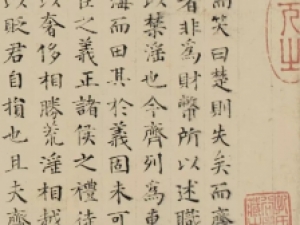 而笑曰楚則失矣而齊
者非為財幣所以述職
以禁淫也今齊列為東
海而田其於義固未可
臣之義正諸侯之禮徒
以奢侈相勝荒淫相越
以貶君自損也且夫齊